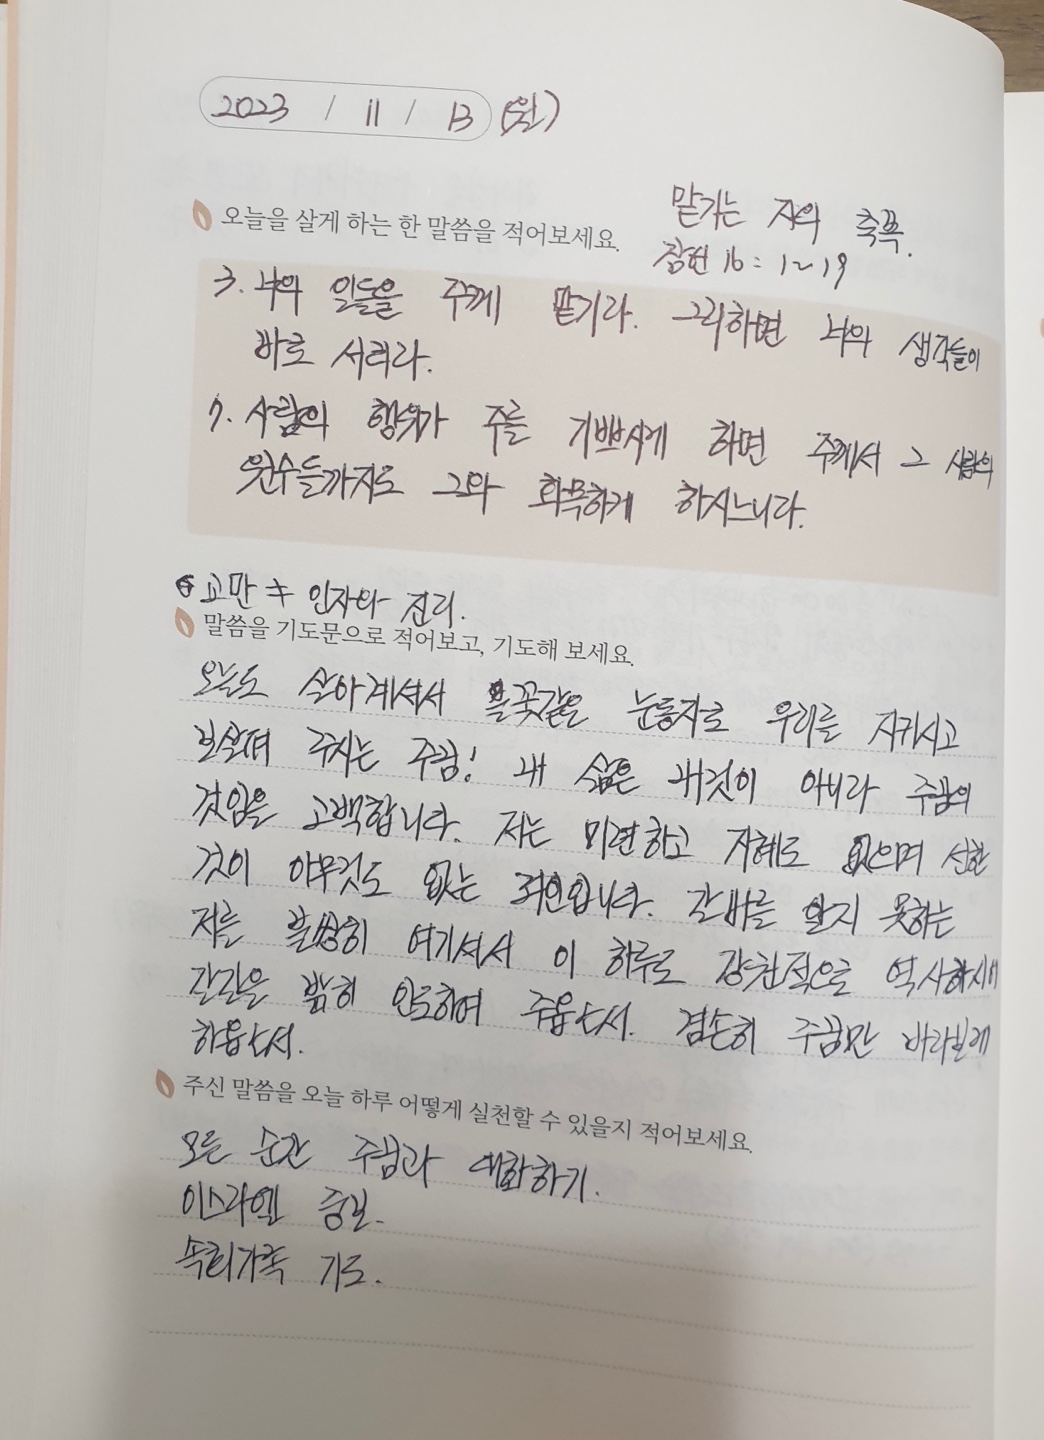 2023 / 11 / 13 (월)
맡기는 자의 축복.
오늘을 살게 하는 한 말씀을 적어보세요.
잠언 16 : 1~19
3. 너의 일들을 주께 맡기라. 그리하면 너의 생각들이
바로 서리라.
7. 사람의 행위가 주를 기쁘시게 하면 주께서 그 사람의
원수들까지도 그와 화목하게 하시느니라.
교만 ≠ 인자와 진리.
말씀을 기도문으로 적어보고, 기도해 보세요.
오늘도 살아계셔서 불꽃같은 눈동자로 우리를 지키시고
보살펴 주시는 주님! 내 삶은 내것이 아니라 주님의
것임을 고백합니다. 저는 미련하고 지혜도 없으며 선한
것이 아무것도 없는 죄인입니다. 갈바를 알지 못하는
저를 불쌍히 여기셔서 이 하루도 강권적으로 역사하시며
갈길을 밝히 인도하여 주옵소서. 겸손히 주님만 바라보게
하옵소서.
주신 말씀을 오늘 하루 어떻게 실천할 수 있을지 적어보세요.
모든 순간 주님과 대화하기.
이스라엘 중보.
속회가족 기도.